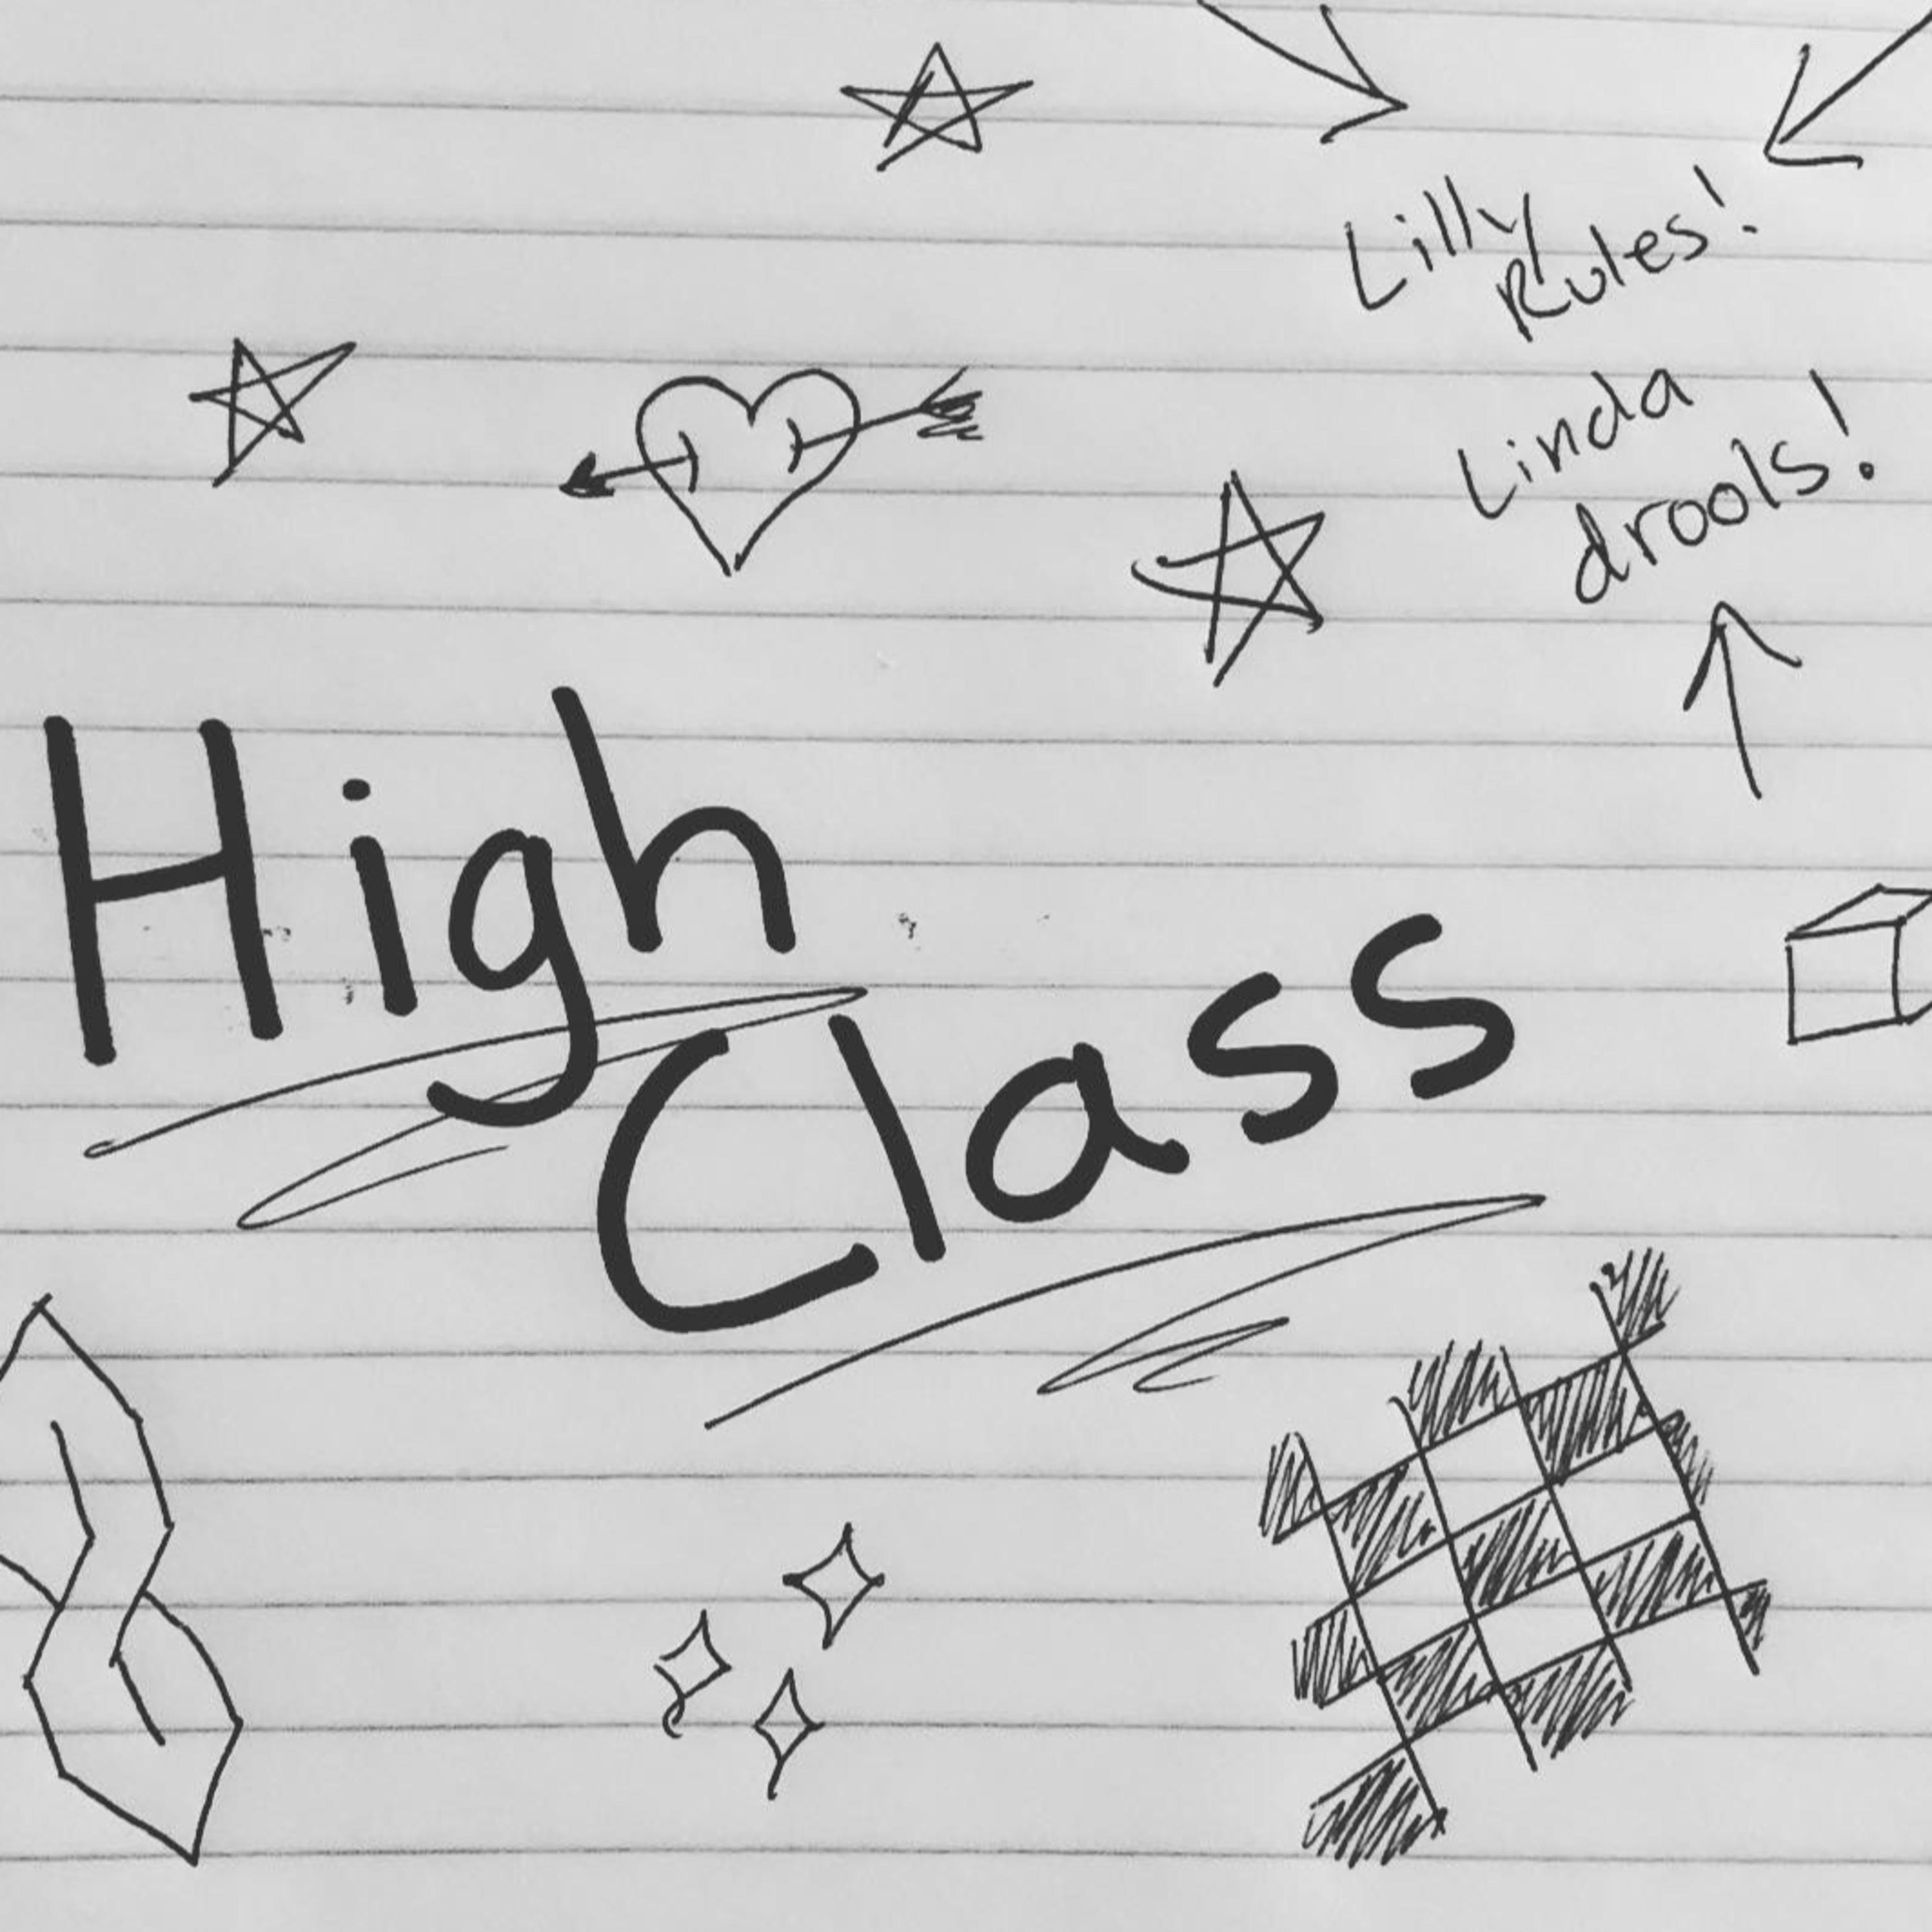 Lilly
Rules!
Linda
drools!
High
Class